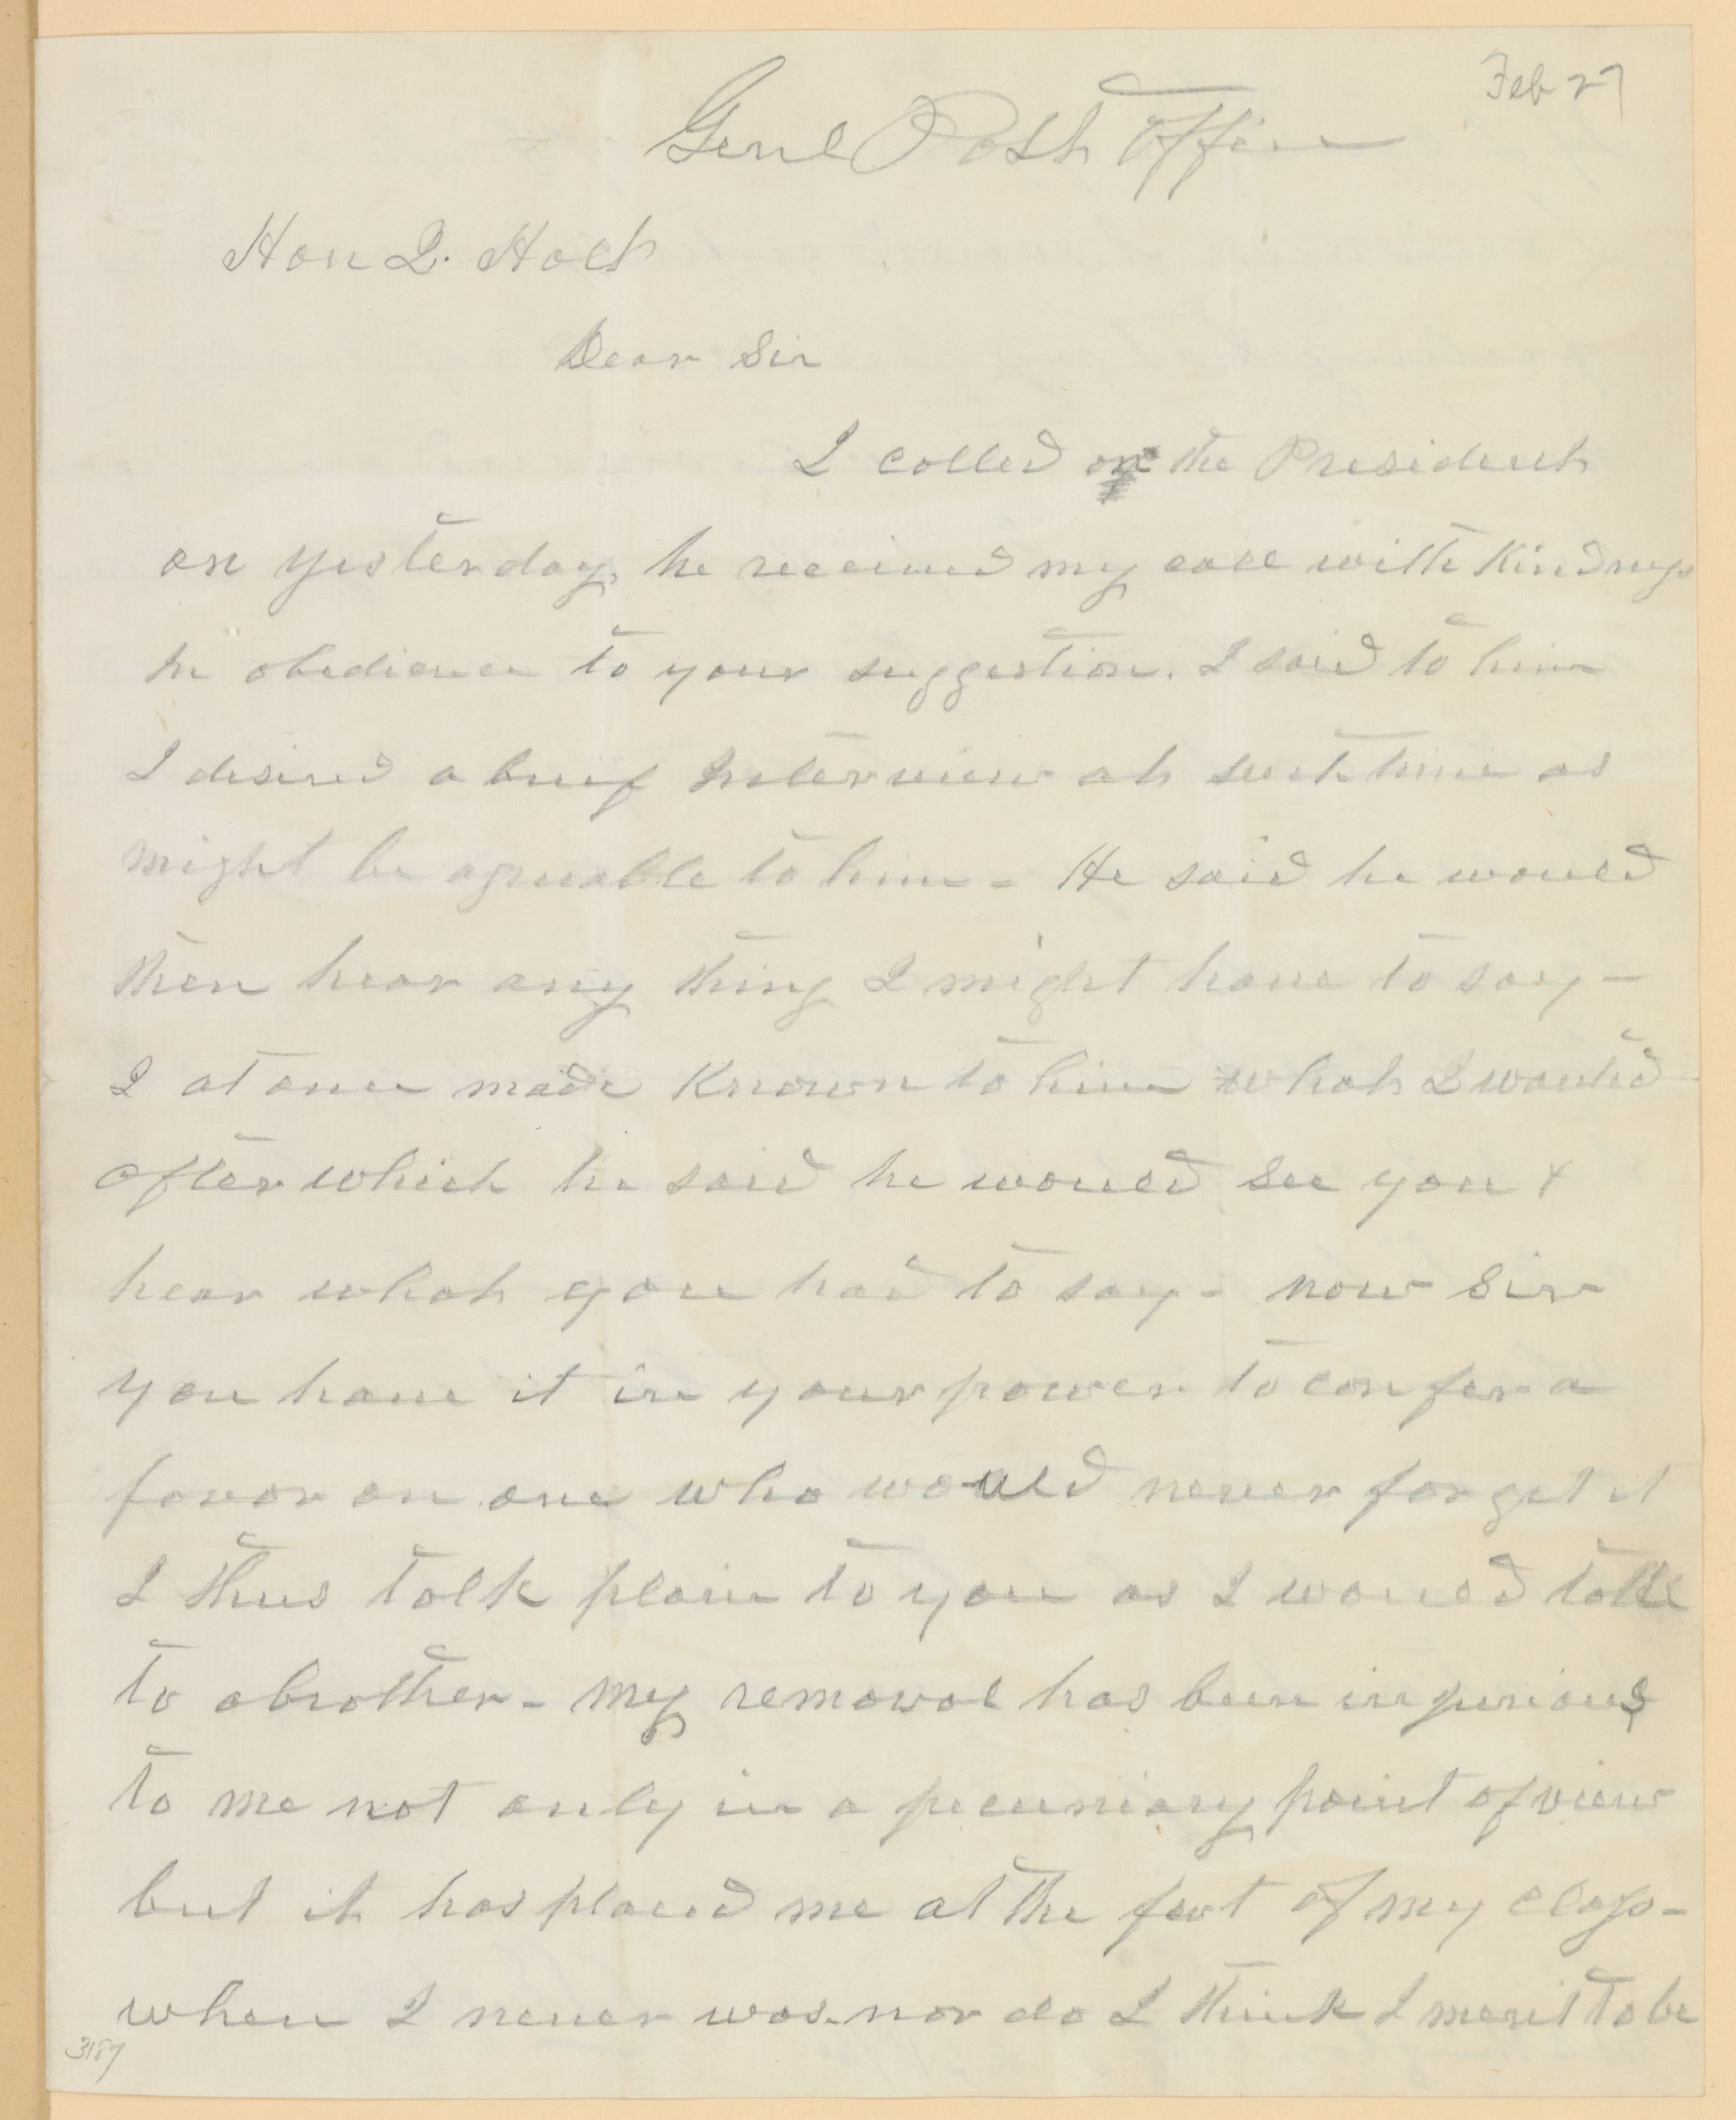 Feb 27
Genl Post Office
Hon J. Holt
Dear Sir
I called on the President
on yesterday, he received my call with kindness
In obedience to your suggestion. I said to him
I desired a brief Interview at such time as
might be agreeable to him - He said he would
then hear any thing I might have to say -
I at once made known to him what I wanted
after which he said he would see you &
hear what you had to say - now Sir
you have it in your power to confer a
favor on one who would never forget it
I thus talk plain to you as I would talk
to a brother - my removal has been injurious
to me not only in a pecuniary point of view
but it has placed me at the foot of my class -
when I never was nor do I think I merit to be
3187